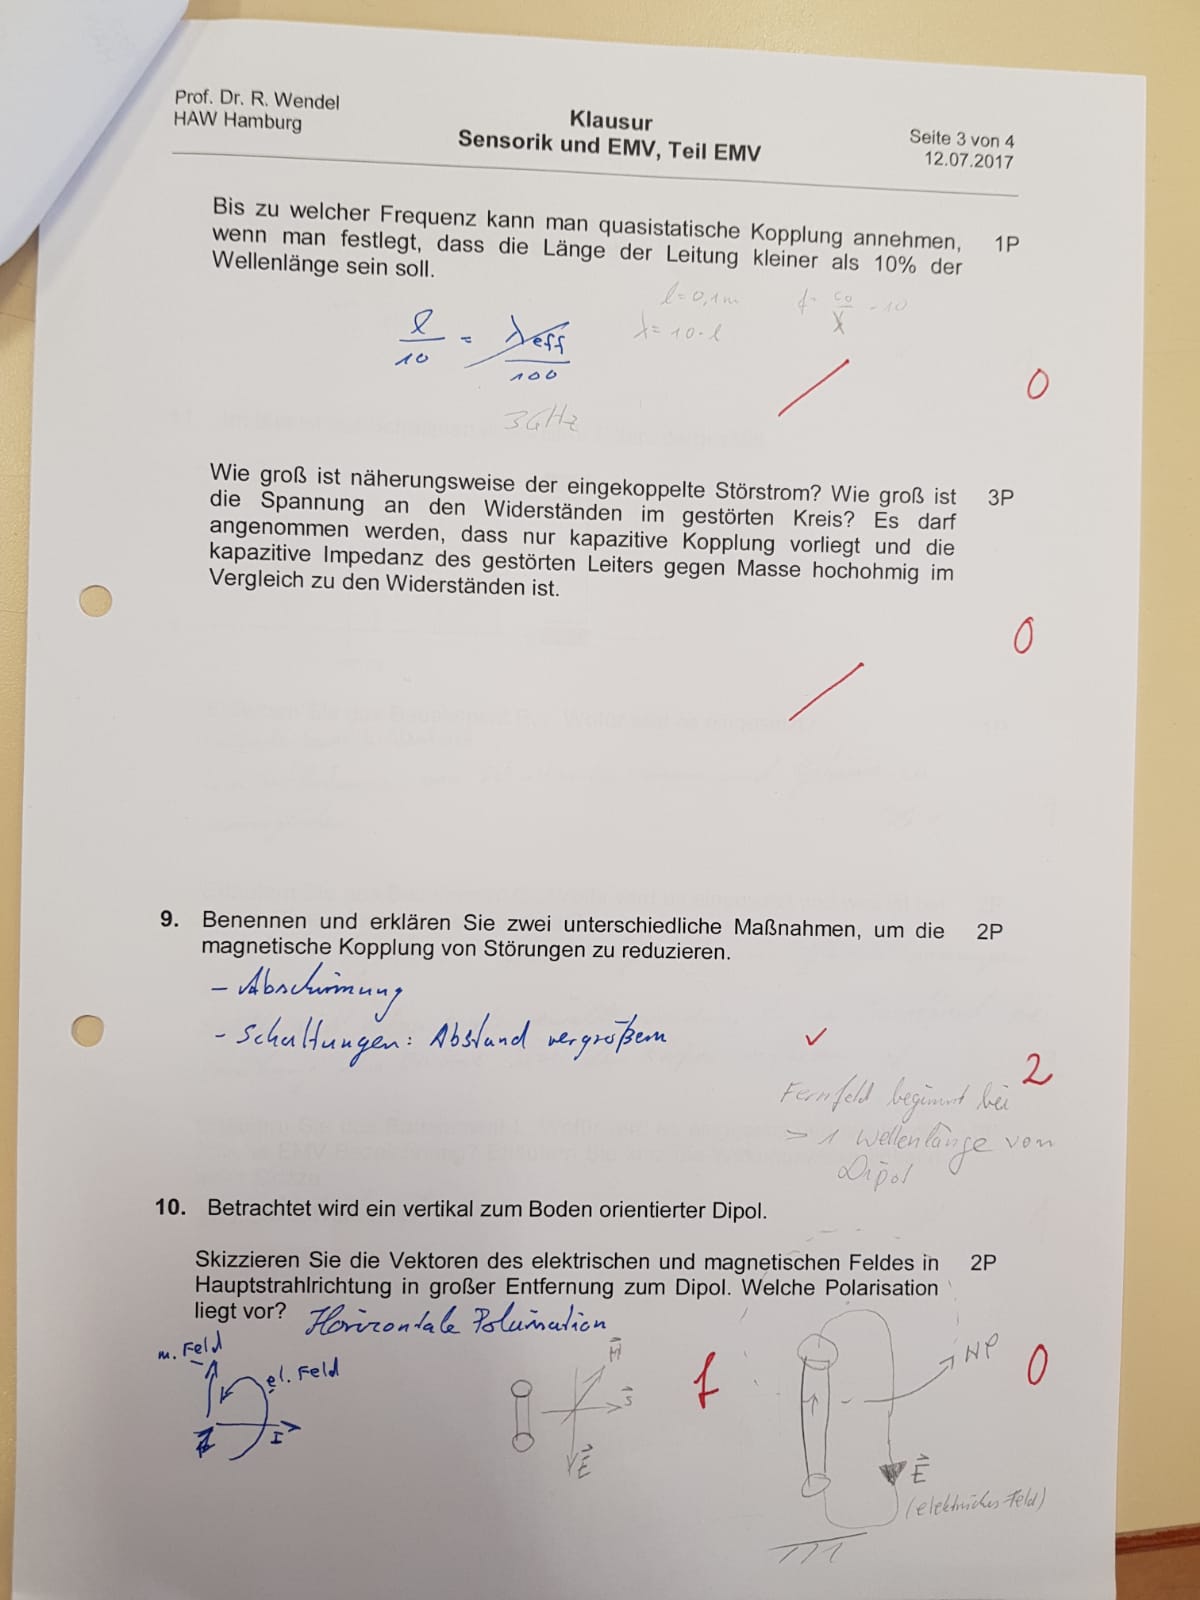 Prof. Dr. R. Wendel
HAW Hamburg
Klausur
Sensorik und EMV, Teil EMV
Seite 3 von 4
12.07.2017
Bis zu welcher Frequenz kann man quasistatische Kopplung annehmen, 1P
wenn man festlegt, dass die Länge der Leitung kleiner als 10% der
Wellenlänge sein soll.
l=0,1m
λ=10·l
f= c0/λ = 10
l/10 = λeff/100
3GHz
0
Wie groß ist näherungsweise der eingekoppelte Störstrom? Wie groß ist 3P
die Spannung an den Widerständen im gestörten Kreis? Es darf
angenommen werden, dass nur kapazitive Kopplung vorliegt und die
kapazitive Impedanz des gestörten Leiters gegen Masse hochohmig im
Vergleich zu den Widerständen ist.
0
9. Benennen und erklären Sie zwei unterschiedliche Maßnahmen, um die 2P
magnetische Kopplung von Störungen zu reduzieren.
- Abschirmung
- Schaltungen: Abstand vergrößern ✓
2
Fernfeld beginnt bei
> 1 Wellenlänge von
Dipol
10. Betrachtet wird ein vertikal zum Boden orientierter Dipol.
Skizzieren Sie die Vektoren des elektrischen und magnetischen Feldes in 2P
Hauptstrahlrichtung in großer Entfernung zum Dipol. Welche Polarisation
liegt vor? Horizontale Polarisation
m. Feld
el. Feld
I
H
S
E
f
HP
0
E
(elektrisches Feld)